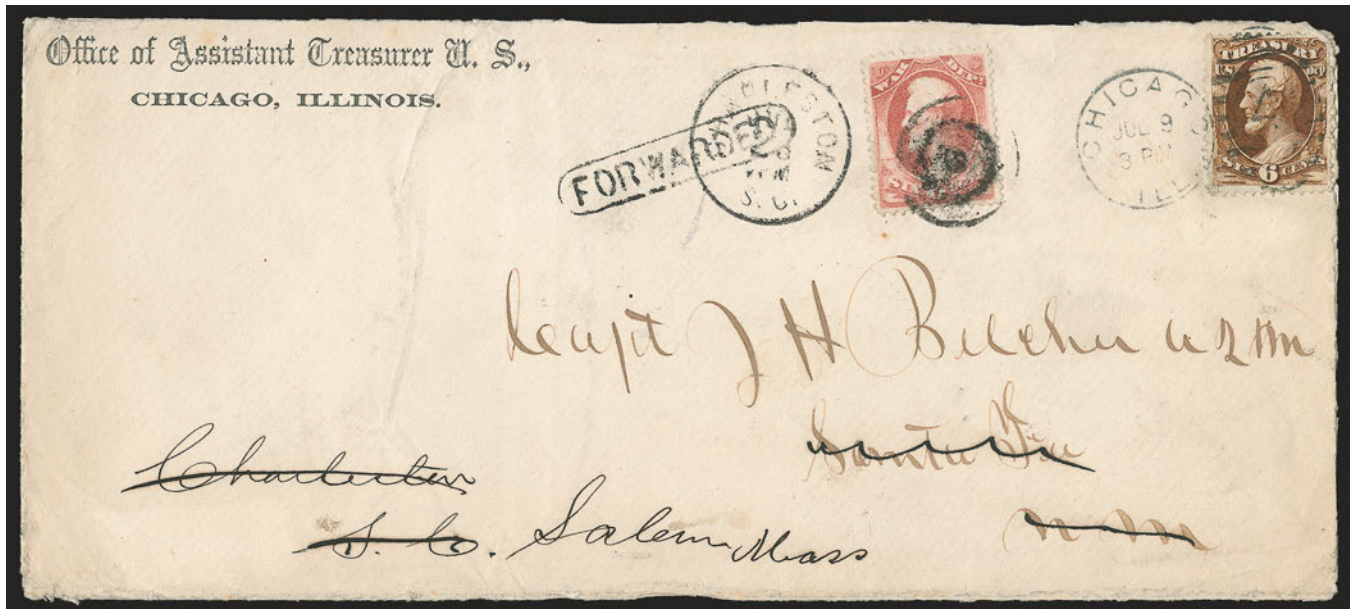 Office of Assistant Treasurer U. S.,
CHICAGO, ILLINOIS.
FORWARDED
S. C.
WAR DEPT
CHICAGO
JUL 9
3 PM
ILL
TREASURY
U.S. DEP
SIX 6 CENTS
Capt J H Belcher A Q M
Santa Fee
N. M
Charleston
S. C. Salem Mass